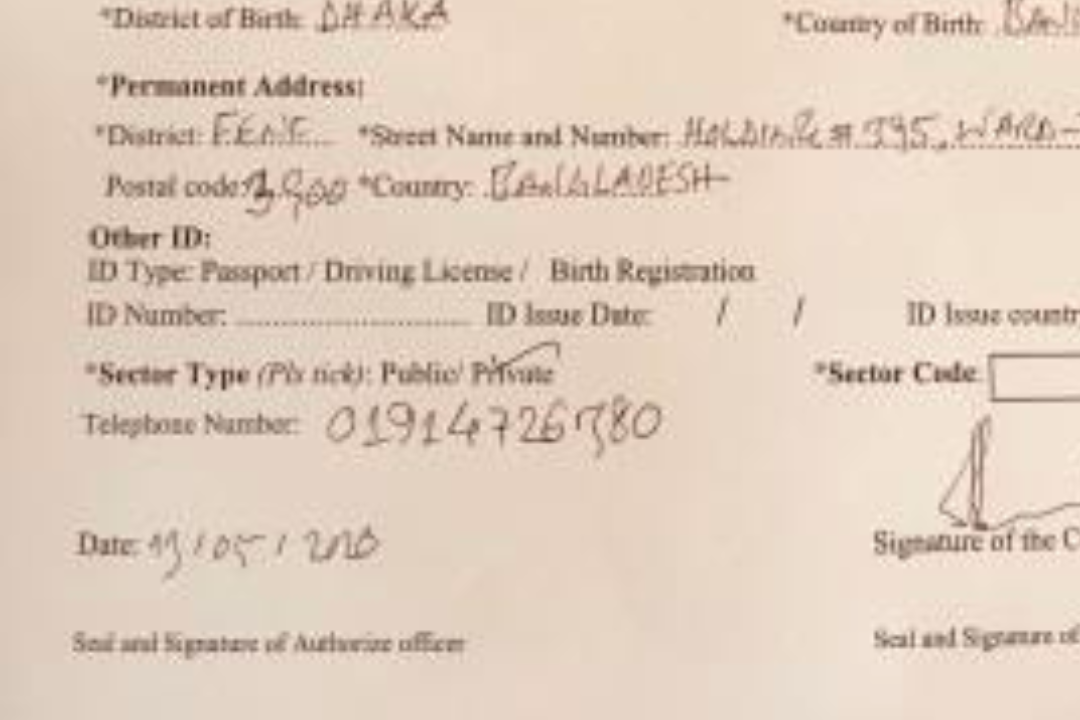 *District of Birth: DHAKA *Country of Birth:
*Permanent Address:
*District: FENI *Street Name and Number: HOLDING # 395, WARD-
Postal code: 3900 *Country: BANGLADESH
Other ID:
ID Type: Passport / Driving License / Birth Registration
ID Number: .............................. ID Issue Date: / / ID Issue country
*Sector Type (Pls tick): Public/ Private *Sector Code
Telephone Number: 01914726380
Date: 13/05/2020 Signature of the C
Seal and Signature of Authorize officer Seal and Signature of